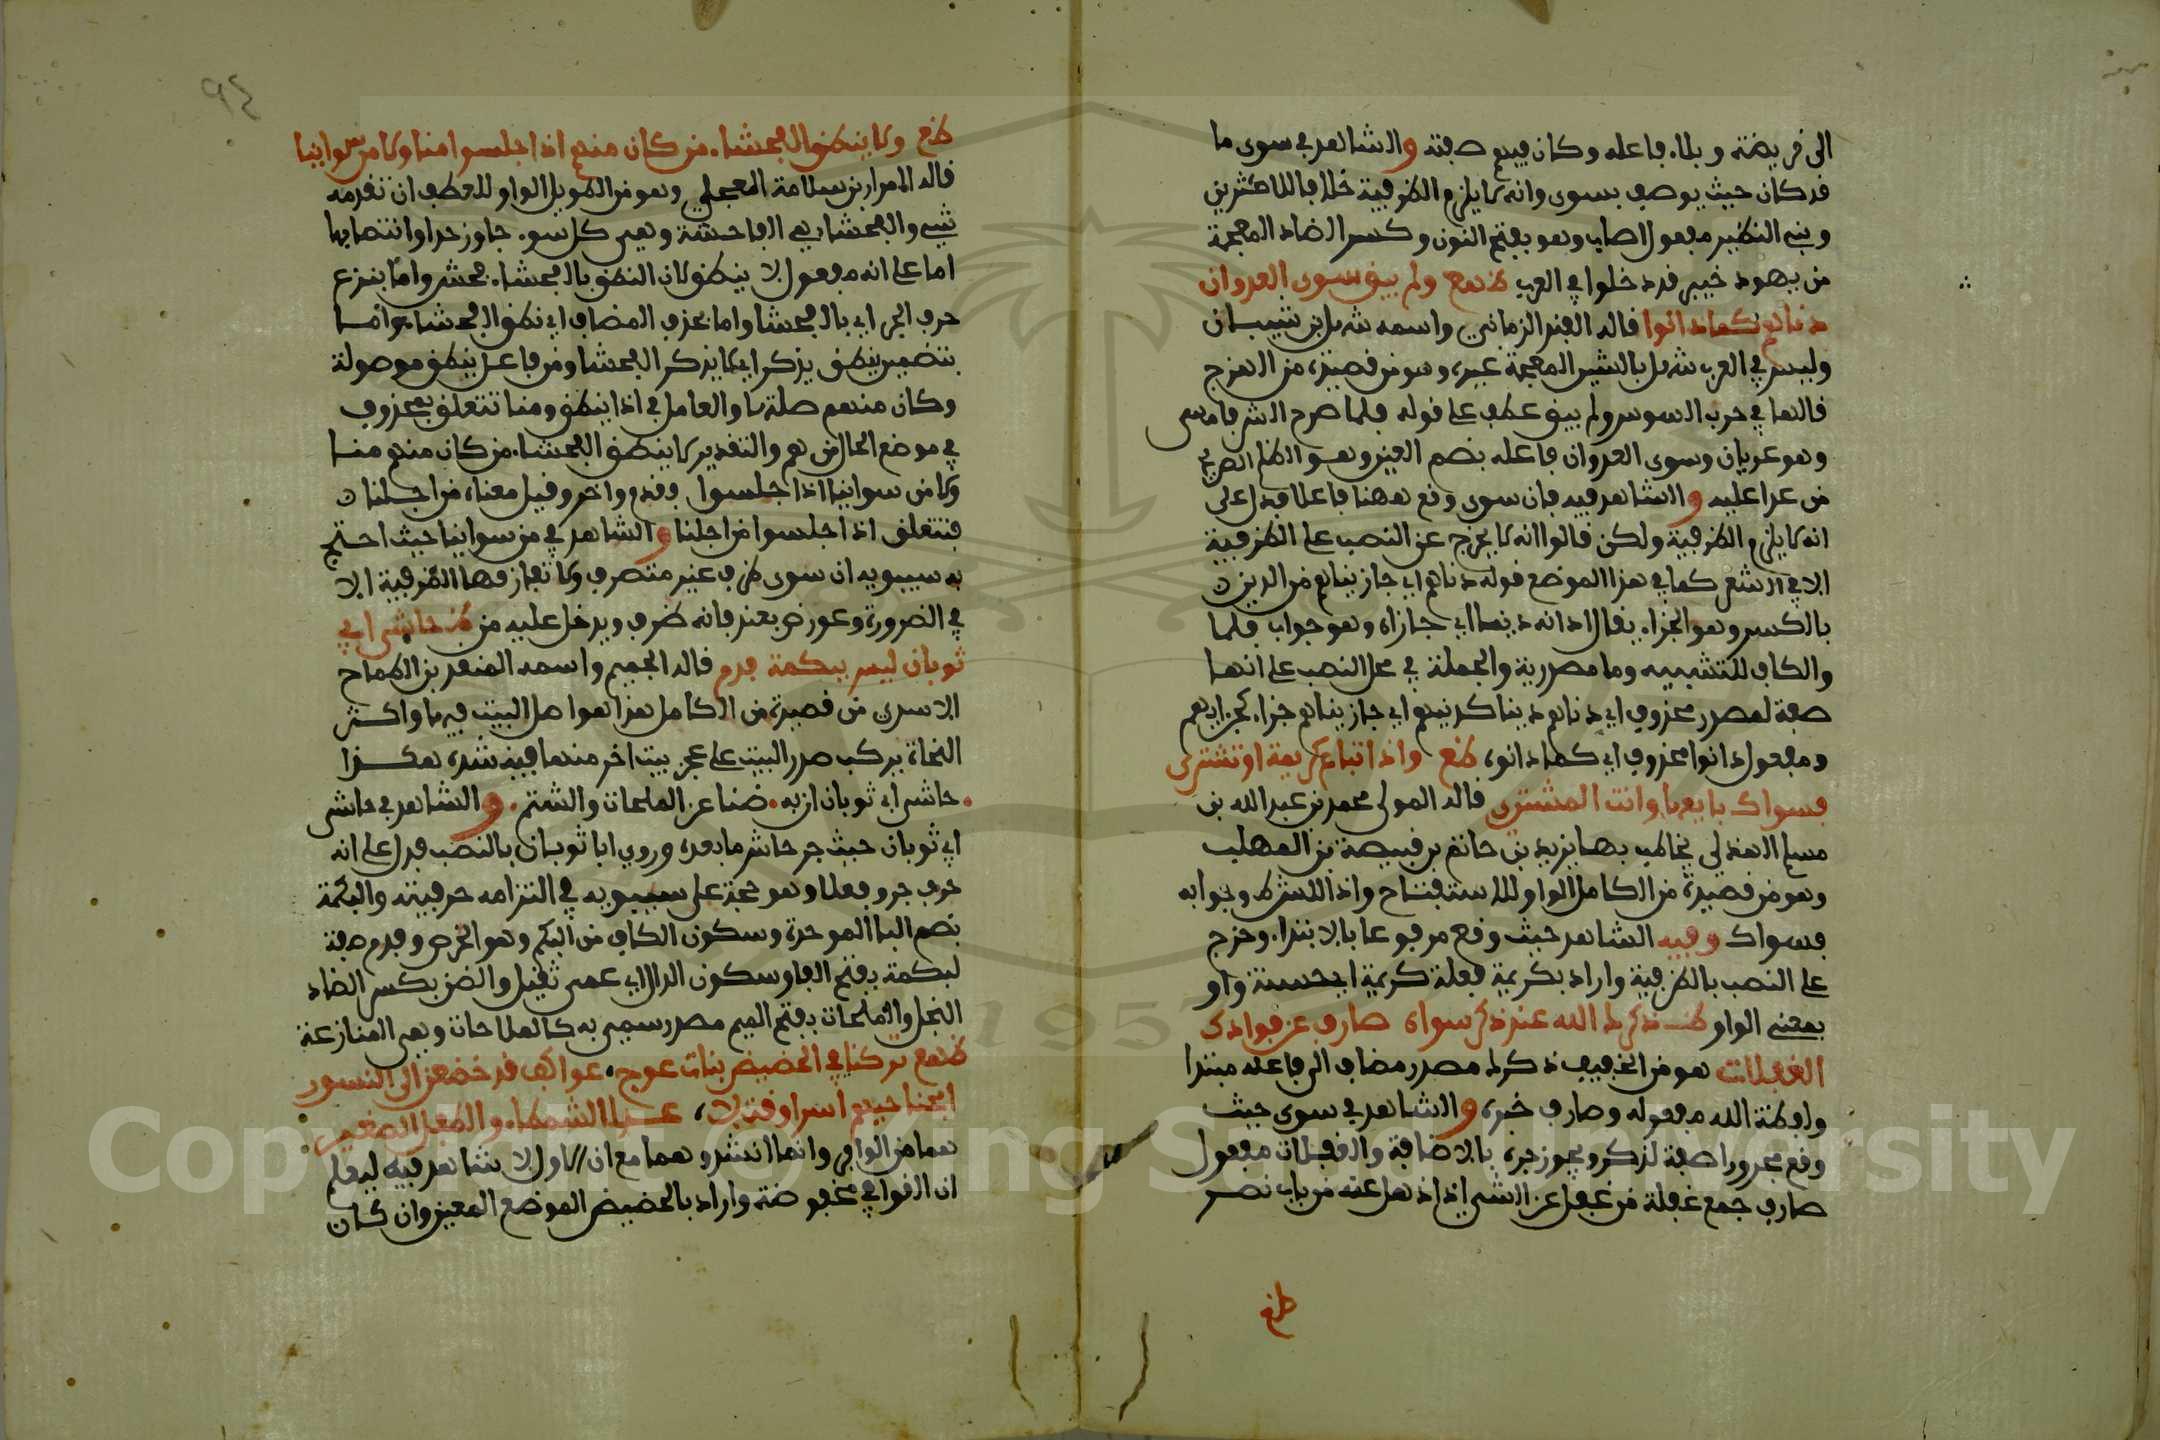 الى قريضة وبلاء فاعله وكان فيهم صفته والشاهد في سوى ما
قد كان حيث يوصف بسوى وانه لا يلزم الظرفية خلافا للاكثرين
وبني النظير مفعول اصاب وهو بفتح النون وكسر الضاد المعجمة
من يهود خيبر قد دخلوا في العرب ظقهع ولم يبق سوى العدوان
دناهم كما دانوا قاله الفند الزماني واسمه شهل بن شيبان
وليس في العرب شهل بالشين المعجمة غيره وهو من قصيدة من الهزج
قالها في حرب البسوس ولم يبق عطف على قوله فلما صرح الشر فامسى
وهو عريان وسوى العدوان فاعله بضم العين وهو الظلم الصريح
من عدا عليه والشاهد فيه فان سوى وقع ههنا فاعلا فدل على
انه لا يلزم الظرفية ولكن قالوا انه لا يخرج عن النصب على الظرفية
الا في الشعر كما في هذا الموضع قوله دناهم اي جازيناهم من الدين
بالكسر وهو الجزاء يقال ادانه دينا اي جازاه وهو جواب فلما
والكاف للتشبيه وما مصدرية والجملة في محل النصب على انها
صفة لمصدر محذوف اي دناهم دينا كدينهم اي جازيناهم جزاء كجزايهم
ومفعول دانوا محذوف اي كما دانوه ظقع واذا تباع كريمة او تشترى
فسواك بايعها وانت المشترى قاله المولى محمد بن عبد الله بن
مسلم الهندلي يخاطب بها يزيد بن حاتم بن قبيصة بن المهلب
وهو من قصيدة من الكامل الواو للاستفتاح واذا للشرط وجوابه
فسواك وفيه الشاهد حيث وقع مرفوعا بالابتداء وخرج
على النصب بالظرفية واراد بكريمة فعلة كريمة اي حسنة واو
بمعنى الواو ظ ذكرك الله عند ذكر سواه صارف عن فوادك
الغفلات هو من الخفيف ذكرك مصدر مضاف الى فاعله مبتدا
ولفظة الله مفعوله وصارف خبره والشاهد في سوى حيث
وقع مجرورا صفة لذكر ويجوز جره بالاضافة والغفلات مفعول
صارف جمع غفلة من غفل عن الشي اذا ذهل عنه من باب نصر
ظقع
٩٤
ظقع ولا ينطق الفحشاء من كان منهم اذا جلسوا منا ولا من سوائنا
قاله المرار بن سلامة العجلي وهو من الطويل الواو للعطف ان تقدمه
شيء والفحشاء هي الفاحشة وهي كل سوء جاوز حدا وانتصابها
اما على انه مفعول لا ينطق لان النطق بالفحشاء فحش واما بنزع
حرف الجر اي بالفحشا واما بحذف المضاف اي نطق الفحشاء واما
بتضمين ينطق يذكر اي لا يذكر الفحشا ومن فاعل ينطق موصولة
وكان منهم صلتها والعامل في اذا ينطق ومنا تتعلق بمحذوف
في موضع الحال من هم والتقدير لا ينطق الفحشاء من كان منهم منا
ولا من سوائنا اذا جلسوا فقدم واخر وقيل معناه من اجلنا
فتتعلق اذا جلسوا من اجلنا والشاهد في من سوائنا حيث احتج
به سيبويه ان سوى ظرف غير متصرف ولا تفارقها الظرفية الا
في الضرورة وعورض بعند فانه ظرف ويدخل عليه من ظ حاشى ابي
ثوبان ليس ببكمة فدم قاله الجميح واسمه المنقذ بن الطماح
الاسدي من قصيدة من الكامل هذا هو اصل البيت فيها واكثر
النحاة يركب صدر البيت على عجز بيت اخر منها فينشده هكذا
حاشى ابي ثوبان ان به ضنا عن الملحات والشتم والشاهد في حاشى
ابي ثوبان حيث جر حاشى ما بعده وروي ابا ثوبان بالنصب فدل على انه
حرف جر وفعلا وهو حجة على سيبويه في التزامه حرفيته والبكمة
بضم الباء الموحدة وسكون الكاف من البكم وهو الخرص وفدم صفة
لبكمة بفتح الفا وسكون الدال اي عمى ثقيل والضن بكسر الضاد
البخل والملحات بفتح الميم مصدر سمى به كالملاحات وهي المنازعة
ظقهع تركنا في الحضيض بنات عوج عواكف قد خضعن الى النسور
ابحنا حيهم اسرا وقتلا عدا الشمطاء والطفل الصغير
هما من الوافر وانما انشدوهما مع ان الاول لا شاهد فيه ليعلم
ان القوافي مخفوضة واراد بالحضيض الموضع المعين وان كان